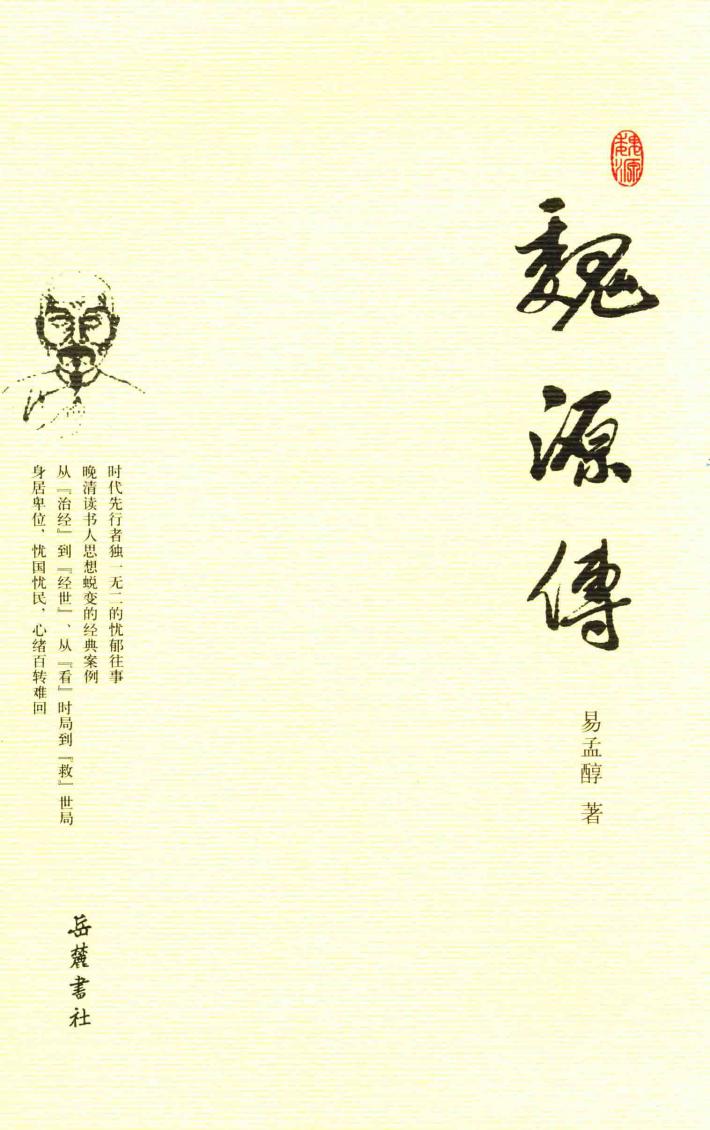 魏源
魏源傳
易孟醇 著
时代先行者独一无二的忧郁往事
晚清读书人思想蜕变的经典案例
从『治经』到『经世』、从『看』时局到『救』世局
身居卑位，忧国忧民，心绪百转难回
岳麓書社